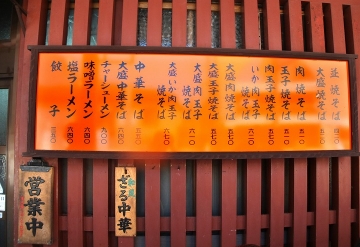 並焼そば
大盛焼そば
肉焼そば
玉子焼そば
肉玉子焼そば
いか焼そば
大盛肉焼そば
大盛玉子焼そば
大盛肉玉子焼そば
大盛いか肉玉子焼そば 六七〇
中華そば 五三〇
大盛中華そば 六四〇
チャーシューメン 九〇〇
味噌ラーメン 六四〇
塩ラーメン 六四〇
餃子
営業中
ざる中華